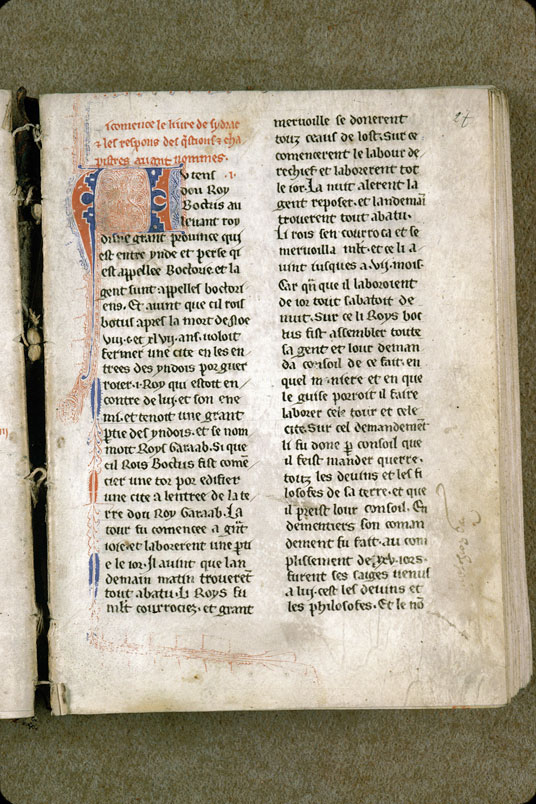 I comence le liure de sydrac
⁊ les respons des q̄stions ⁊ cha
pistres auant nommes.
V tens
dou Roy
Boctus au
leuant roy
dune grant prouince qui
est entre ynde et perse qi
est appellee Boctorie. et la
gent sunt appelles boctori
ens. Et auint que cil rois
botus apres la mort de noe
viij. c. et xlvij. ans. uoloit
fermer une cite en les en
trees des yndois por guer
roier .i. Roy qui estoit en
contre de lui. et son ene
mi. et tenoit une grant
ꝑtie des yndois. et se nom
moit Roys Garaab. Si que
cil Rois Boctus fist comē
cier une tor por edifier
une cite a lentree de la te
rre dou Roy Garaab. La
tour fu comencee a grāt
ioie. et laborerent une ꝑti
e le ior. Il auint que lan
demain matin trouerēt
tout abatu. Li Roys fu
mlt courrociez. et grant
meruoille se donerent
touz ceaus de lost. Sur ce
comencerent le labour de
rechief et laborerent tot
le ior. La nuit alerent la
gent reposer. et landemaī
trouerent tout abatu.
Li rois sen courroca et se
meruoilla mlt. et ce li a
uint iusques a .vij. mois.
Car qn̄ que il laboroient
de ior tout sabatoit de
nuit. Sur ce li Roys boc
tus fist assembler toute
sa gent et lour deman
da consoil de ce fait. en
quel maniere et en que
le guise porroit il faire
laborer cele tour et cele
cite. Sur cel demandemēt
li fu done ꝑ consoil que
il feist mander querre.
touz les deuins et les fi
losofes de sa terre. et que
il preist lour consoil. En
dementiers son coman
dement fu fait. au com
plissement de .xv. iors.
furent ses saiges uenus
a lui. cest les deuins et
les philosofes. Et le nō